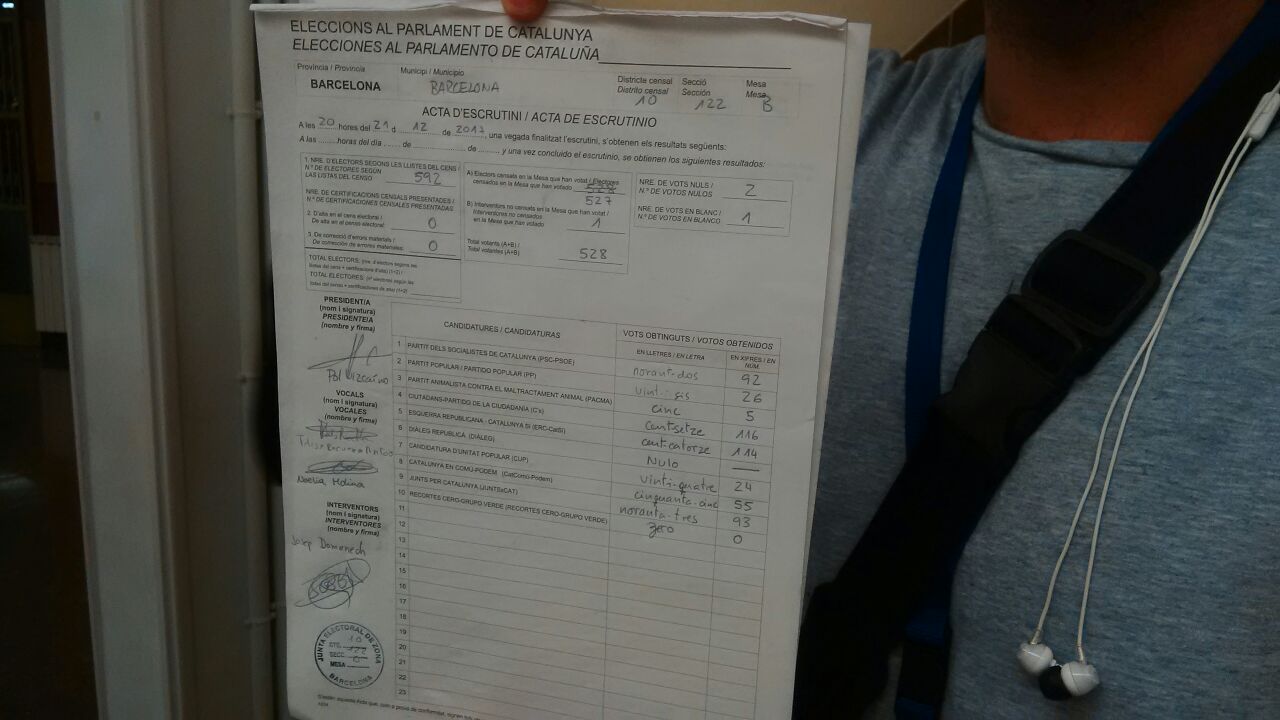 ELECCIONS AL PARLAMENT DE CATALUNYA
ELECCIONES AL PARLAMENTO DE CATALUÑA
Província / Provincia Municipi / Municipio Districte censal Secció Mesa
BARCELONA BARCELONA Distrito censal Sección Mesa
10 122 B
ACTA D'ESCRUTINI / ACTA DE ESCRUTINIO
A les 20 hores del 21 d 12 de 2017, una vegada finalitzat l'escrutini, s'obtenen els resultats següents:
A las ........ horas del día ...... de ............ de ........ y una vez concluido el escrutinio, se obtienen los siguientes resultados:
1. NRE. D'ELECTORS SEGONS LES LLISTES DEL CENS /
N.º DE ELECTORES SEGÚN
LAS LISTAS DEL CENSO 592
NRE. DE CERTIFICACIONS CENSALS PRESENTADES /
N.º DE CERTIFICACIONES CENSALES PRESENTADAS
2. D'alta en el cens electoral /
De alta en el censo electoral: 0
3. De correcció d'errors materials /
De corrección de errores materiales: 0
TOTAL ELECTORS: (nre. d'electors segons les
llistes del cens + certificacions d'alta) (1+2) /
TOTAL ELECTORES: (nº electores según las
listas del censo + certificaciones de alta) (1+2)
A) Electors censats en la Mesa que han votat / Electores
censados en la Mesa que han votado 528
527
B) Interventors no censats en la Mesa que han votat /
Interventores no censados
en la Mesa que han votado 1
Total votants (A+B) /
Total votantes (A+B) 528
NRE. DE VOTS NULS /
N.º DE VOTOS NULOS 2
NRE. DE VOTS EN BLANC /
N.º DE VOTOS EN BLANCO 1
PRESIDENT/A
(nom i signatura)
PRESIDENTE/A
(nombre y firma)
Pol Vizcaíno
VOCALS
(nom i signatura)
VOCALES
(nombre y firma)
Noelia Molina
INTERVENTORS
(nom i signatura)
INTERVENTORES
(nombre y firma)
Josep Domenech
JUNTA ELECTORAL DE ZONA
DTE. 10
SECC. 122
MESA
BARCELONA
CANDIDATURES / CANDIDATURAS VOTS OBTINGUTS / VOTOS OBTENIDOS
EN LLETRES / EN LETRA EN XIFRES / EN NÚM.
1 PARTIT DELS SOCIALISTES DE CATALUNYA (PSC-PSOE) noranta-dos 92
2 PARTIT POPULAR / PARTIDO POPULAR (PP) vint-i-sis 26
3 PARTIT ANIMALISTA CONTRA EL MALTRACTAMENT ANIMAL (PACMA) cinc 5
4 CIUTADANS-PARTIDO DE LA CIUDADANÍA (C's) centsetze 116
5 ESQUERRA REPUBLICANA - CATALUNYA SÍ (ERC-CatSí) cent catorze 114
6 DIÀLEG REPUBLICÀ (DIÀLEG) Nulo —
7 CANDIDATURA D'UNITAT POPULAR (CUP) vint-i-quatre 24
8 CATALUNYA EN COMÚ-PODEM (CatComú-Podem) cinquanta-cinc 55
9 JUNTS PER CATALUNYA (JUNTSxCAT) noranta-tres 93
10 RECORTES CERO-GRUPO VERDE (RECORTES CERO-GRUPO VERDE) zero 0
11
12
13
14
15
16
17
18
19
20
21
22
23